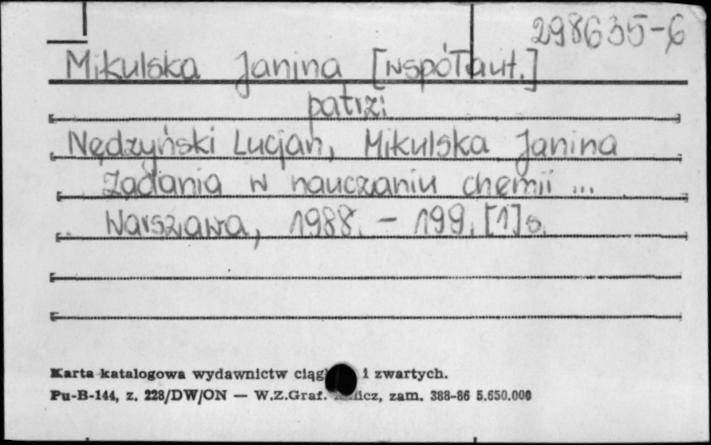 298635-6
Mikulska Janina [współaut.]
patrz:
Nędzyński Lucjan, Mikulska Janina
Zadania w nauczaniu chemii ...
Warszawa, 1988. - 199, [1] s.
Karta katalogowa wydawnictw i zwartych.
Pu-B-144, z. 228/DW/ON — W.Z.Graf. zam. 388-86 5.650.000